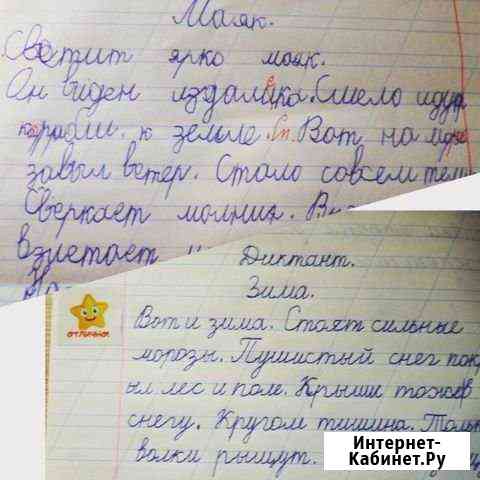 Маяк.
Светит ярко маяк.
Он виден издалека. Смело идут
корабли к земле. Вот на море
завыл ветер. Стало совсем тем
Сверкает молния.
взлетает
Диктант.
Зима.
отлично
Вот и зима. Стоят сильные
морозы. Пушистый снег пок
ыл лес и поле. Крыши тоже в
снегу. Кругом тишина. Толь
волки рыщут.
Интернет-
Кабинет.Ру